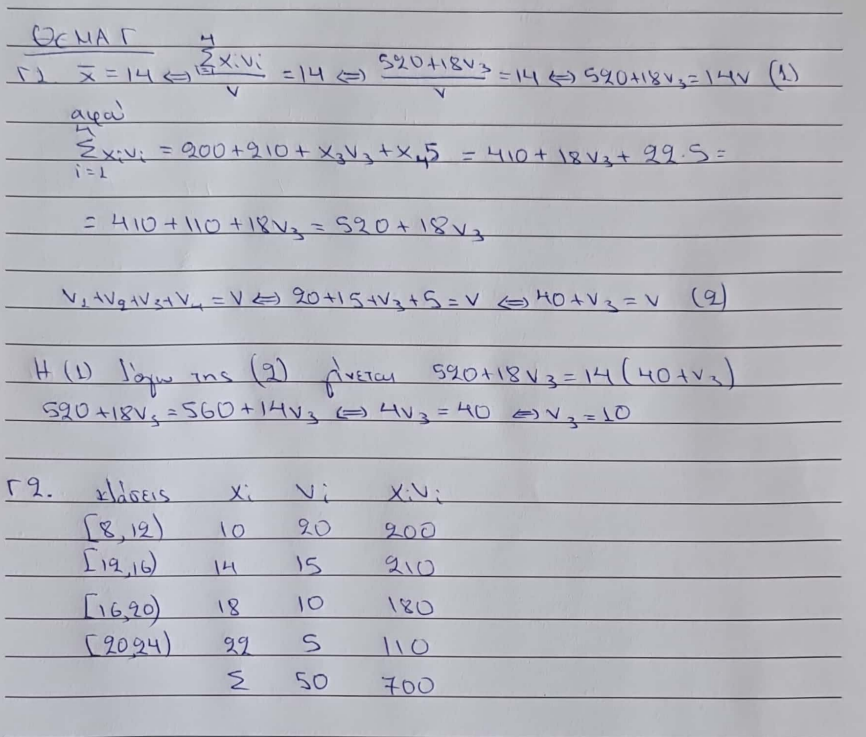 ΘΕΜΑ Γ
Γ1 x̄ = 14 ⇔ 4 Σ i=1 xᵢvᵢ / v = 14 ⇔ 520+18v₃ / v = 14 ⇔ 520+18v₃ = 14v (1)
αφού
4 Σ i=1 xᵢvᵢ = 200+210+x₃v₃+x₄5 = 410+18v₃+22·5 =
= 410+110+18v₃ = 520+18v₃
v₁+v₂+v₃+v₄ = v ⇔ 20+15+v₃+5 = v ⇔ 40+v₃ = v (2)
Η (1) λόγω της (2) γίνεται 520+18v₃ = 14(40+v₃)
520+18v₃ = 560+14v₃ ⇔ 4v₃ = 40 ⇔ v₃ = 10
Γ2. κλάσεις xᵢ vᵢ xᵢvᵢ
[8,12) 10 20 200
[12,16) 14 15 210
[16,20) 18 10 180
[20,24) 22 5 110
Σ 50 700